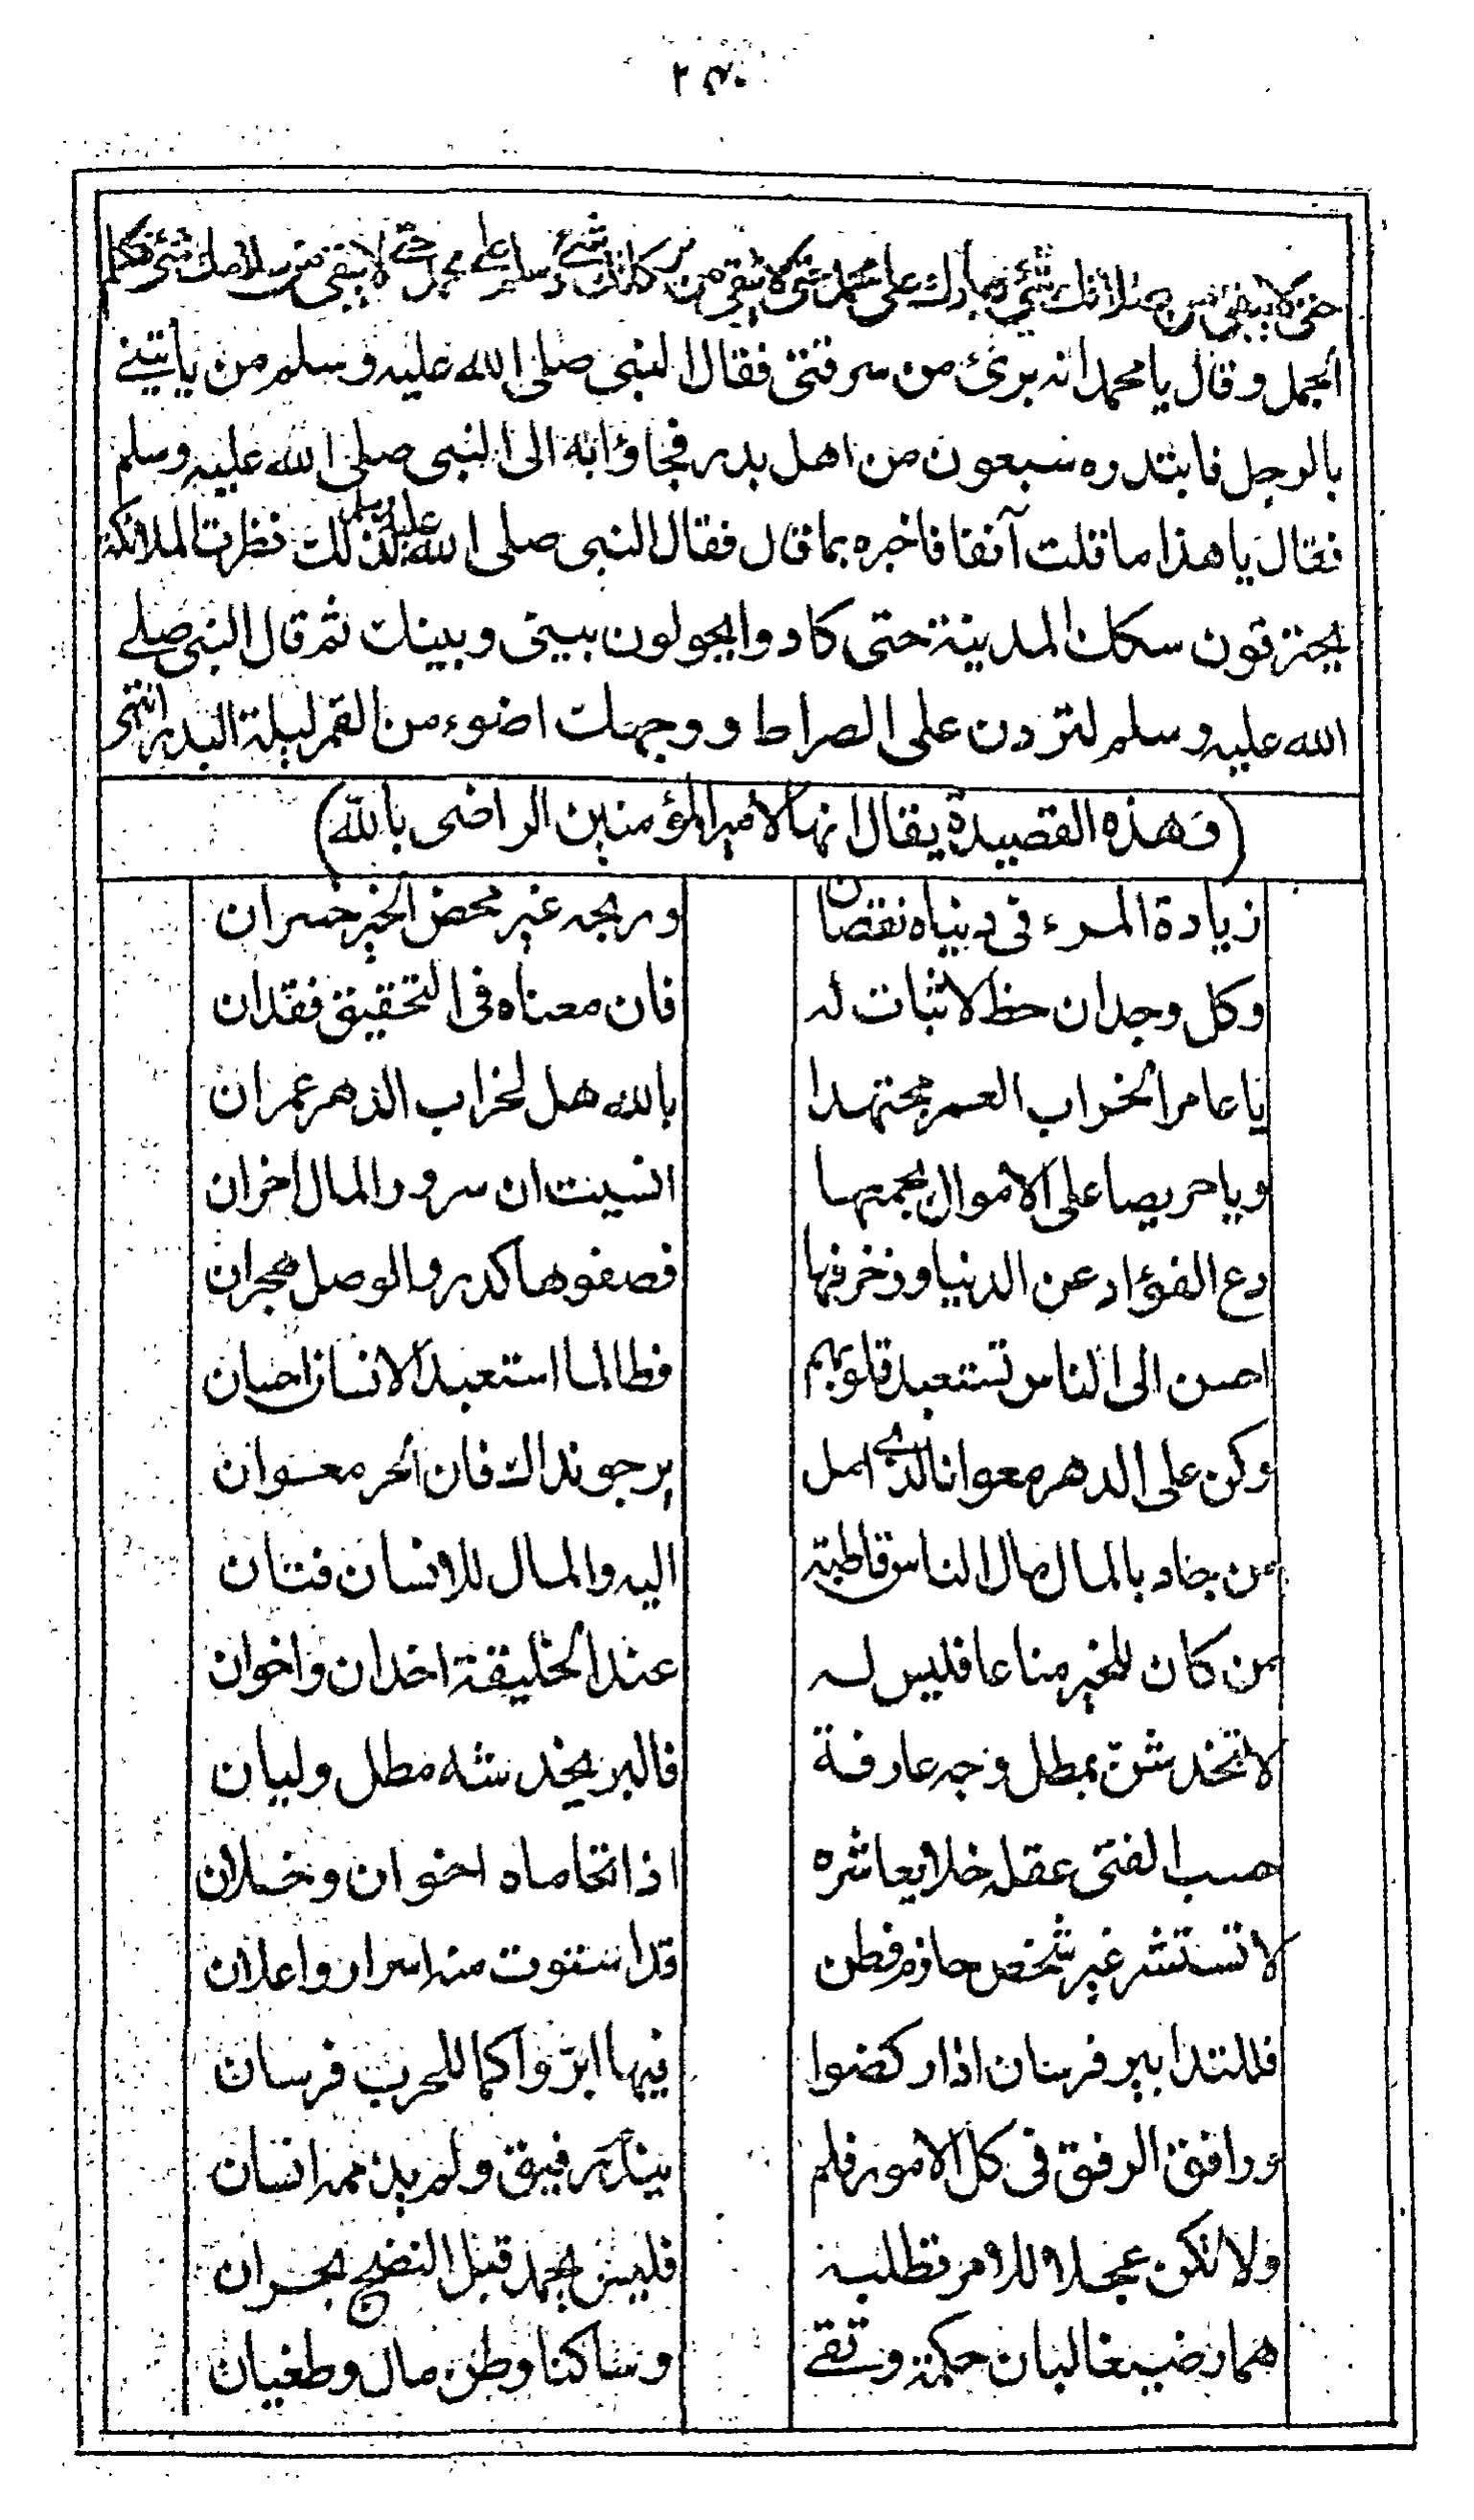 حتى لا يبقى من صلاتك شئ وبارك على محمد حتى لا يبقى من بركاتك شئ وسلم على محمد حتى لا يبقى من سلامك شئ فتكلم
الجمل وقال يا محمد انه برئ من سرقتى فقال النبى صلى الله عليه وسلم من ياتينے
بالرجل فابتدره سبعون من اهل بدر فجاؤا به الى النبى صلى الله عليه وسلم
فقال يا هذا ما قلت آنفا فاخبره بما قال فقال النبى صلى الله عليه وسلم لذلك نظرت الملائكة
يخترقون سكك المدينة حتى كادوا يحولون بينى وبينك ثم قال النبى صلے
الله عليه وسلم لتردن على الصراط ووجهك اضوء من القمر ليلة البدر انتهى
(وهذه القصيدة يقال انها لامير المؤمنين الراضى بالله)
زيادة المرء فى دنياه نقصان وربحه غير محض الخير خسران
وكل وجدان حظ لا ثبات له فان معناه فى التحقيق فقدان
يا عامر الخراب العمر مجتهدا بالله هل لخراب الدهر عمران
ويا حريصا على الاموال يجمعها انسيت ان سرور المال احزان
دع الفؤاد عن الدنيا وزخرفها فصفوها كدر والوصل هجران
احسن الى الناس تستعبد قلوبهم فطالما استعبد الانسان احسان
وكن على الدهر معوانا لذى امل يرجو نداك فان الحر معوان
من جاد بالمال مال الناس قاطبة اليه والمال للانسان فتان
من كان للخير مناعا فليس له عند الخليقة اخدان واخوان
لا تخدشن بمطل وجه عارفة فالبر يخدشه مطل وليان
حسب الفتى عقله خلا يعاشره اذا تحاماه اخوان وخلان
لا تستشر غير شخص حازم فطن قد استوت منه اسرار واعلان
فللتدابير فرسان اذا ركضوا فيها ابروا كما للحرب فرسان
ورافق الرفق فى كل الامور فلم يندم رفيق ولم يذممه انسان
ولا تكن عجلا للامر تطلبه فليس يحمد قبل النضج بحران
هما رضيعا لبان حكمة وتقے وساكنا وطن مال وطغيان